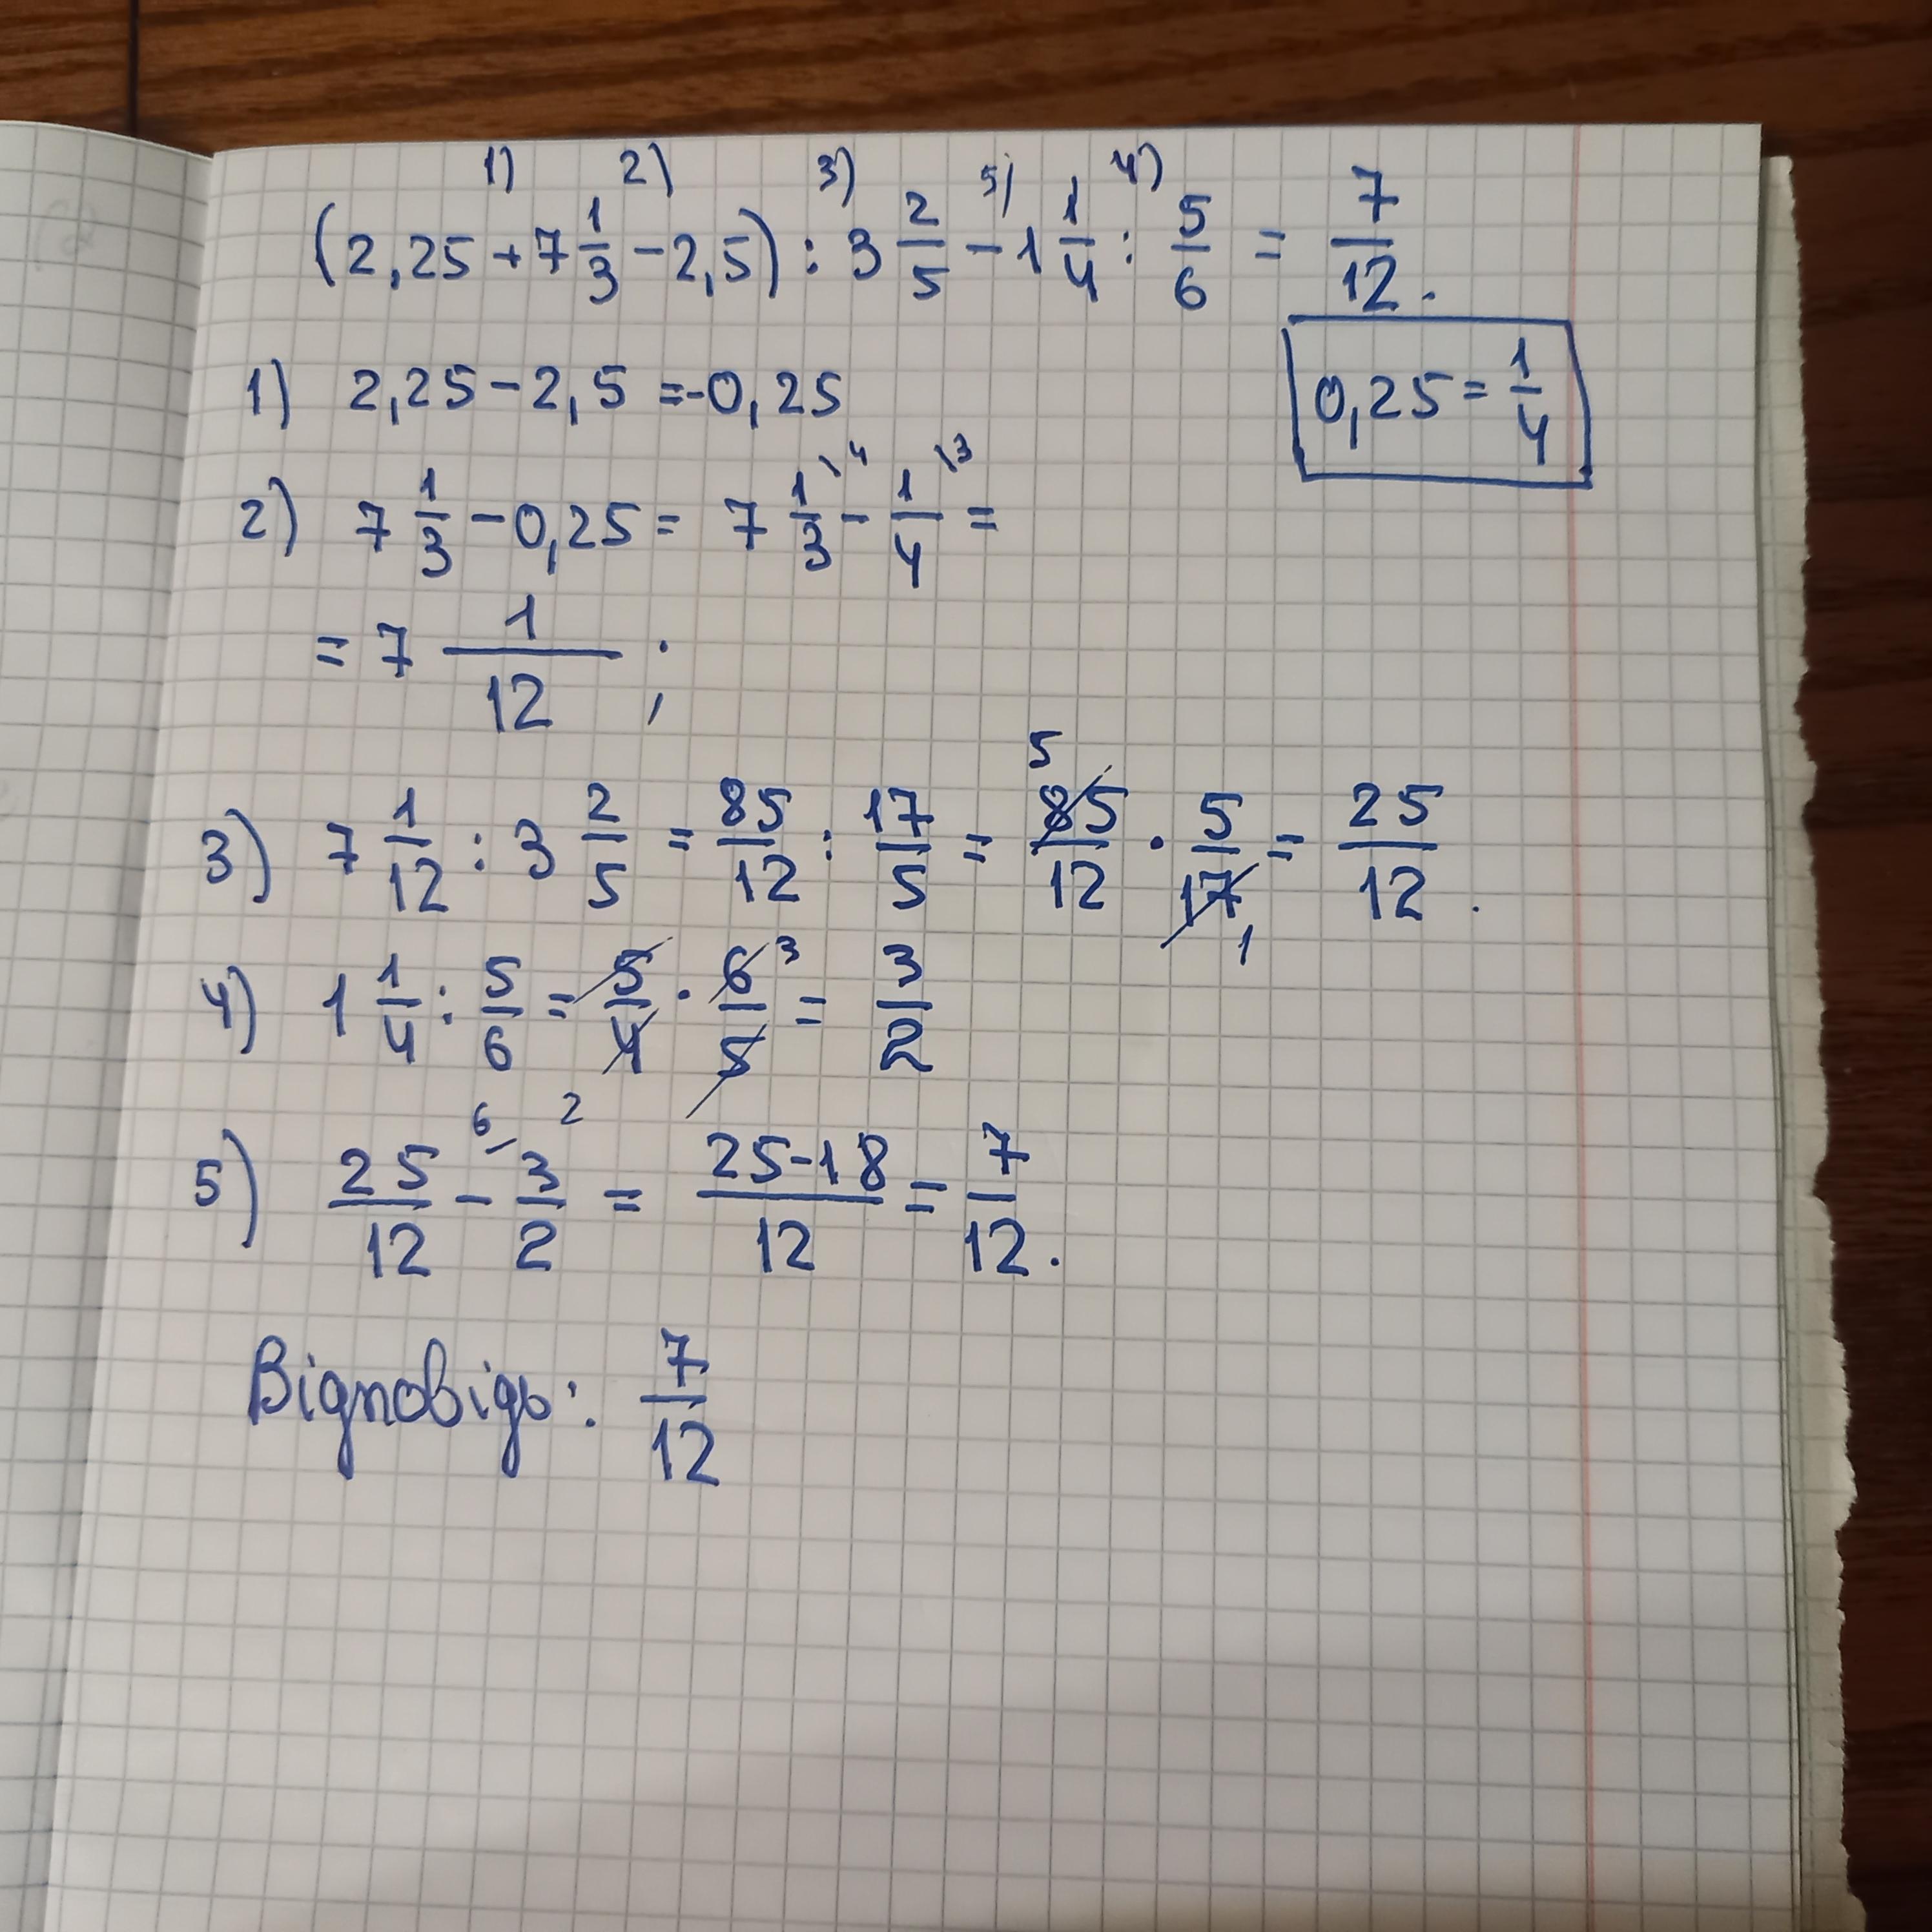 1) 2) 3) 5) 4)
(2,25 + 7 1/3 - 2,5) : 3 2/5 - 1 1/4 : 5/6 = 7/12.
0,25 = 1/4
1) 2,25 - 2,5 = -0,25
2) 7 1/3 - 0,25 = 7 1/3 \4 - 1/4 \3 =
= 7 1/12 ;
3) 7 1/12 : 3 2/5 = 85/12 : 17/5 = 85/12 5 · 5/17 1 = 25/12.
4) 1 1/4 : 5/6 = 5/4 · 6/5 3 = 3/2
5) 25/12 - 3/2 6 2 = 25-18/12 = 7/12.
Відповідь: 7/12